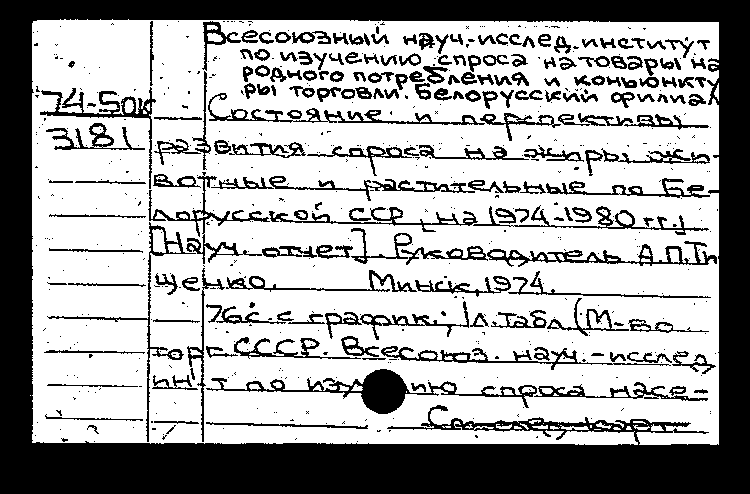 Всесоюзный науч.-исслед. институт
по изучению спроса на товары на
родного потребления и коньюнкту
ры торговли. Белорусский филиал
74-5ок
Состояние и перспективы
3181
развития спроса на жиры жи-
вотные и растительные по Бе-
лорусской ССР [на 1974-1980 гг.]
[Науч. отчет]. Руководитель А.П.Ти
щенко. Минск, 1974.
76с. с график.; 1л.табл (М-во
торг СССР. Всесоюз. науч.-исслед
ин-т по изу ию спроса насе-
См. след. карт.